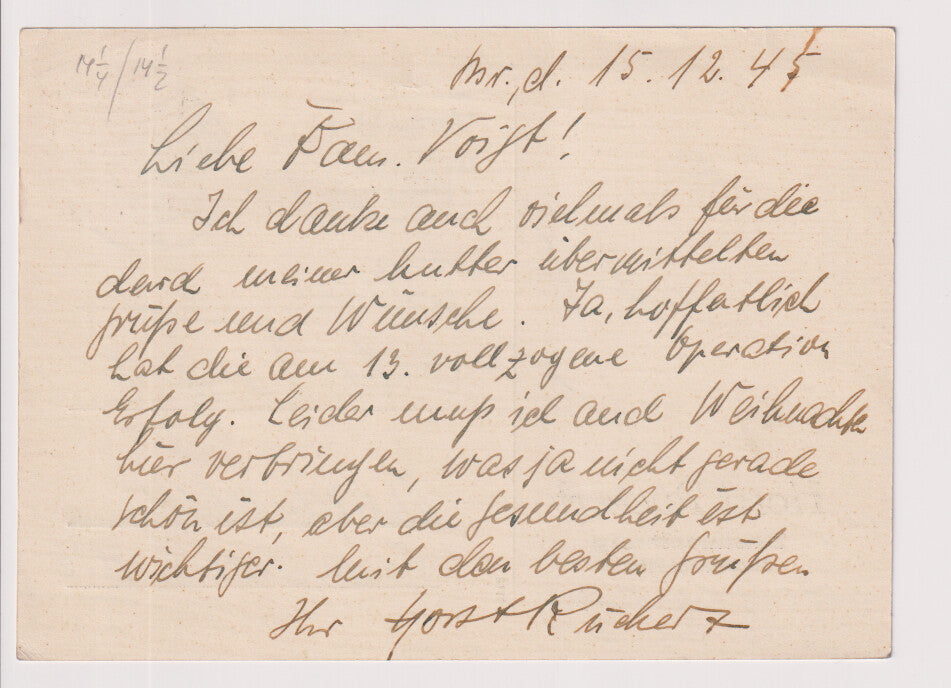 14 1/4 / 14 1/2
Br., d. 15. 12. 45
Liebe Fam. Voigt!
Ich danke auch vielmals für die
durch meiner Mutter übermittelten
Grüße und Wünsche. Ja, hoffentlich
hat die am 13. vollzogene Operation
Erfolg. Leider muß ich auch Weihnachten
hier verbringen, was ja nicht gerade
schön ist, aber die Gesundheit ist
wichtiger. Mit den besten Grüßen
Ihr Horst Rückert